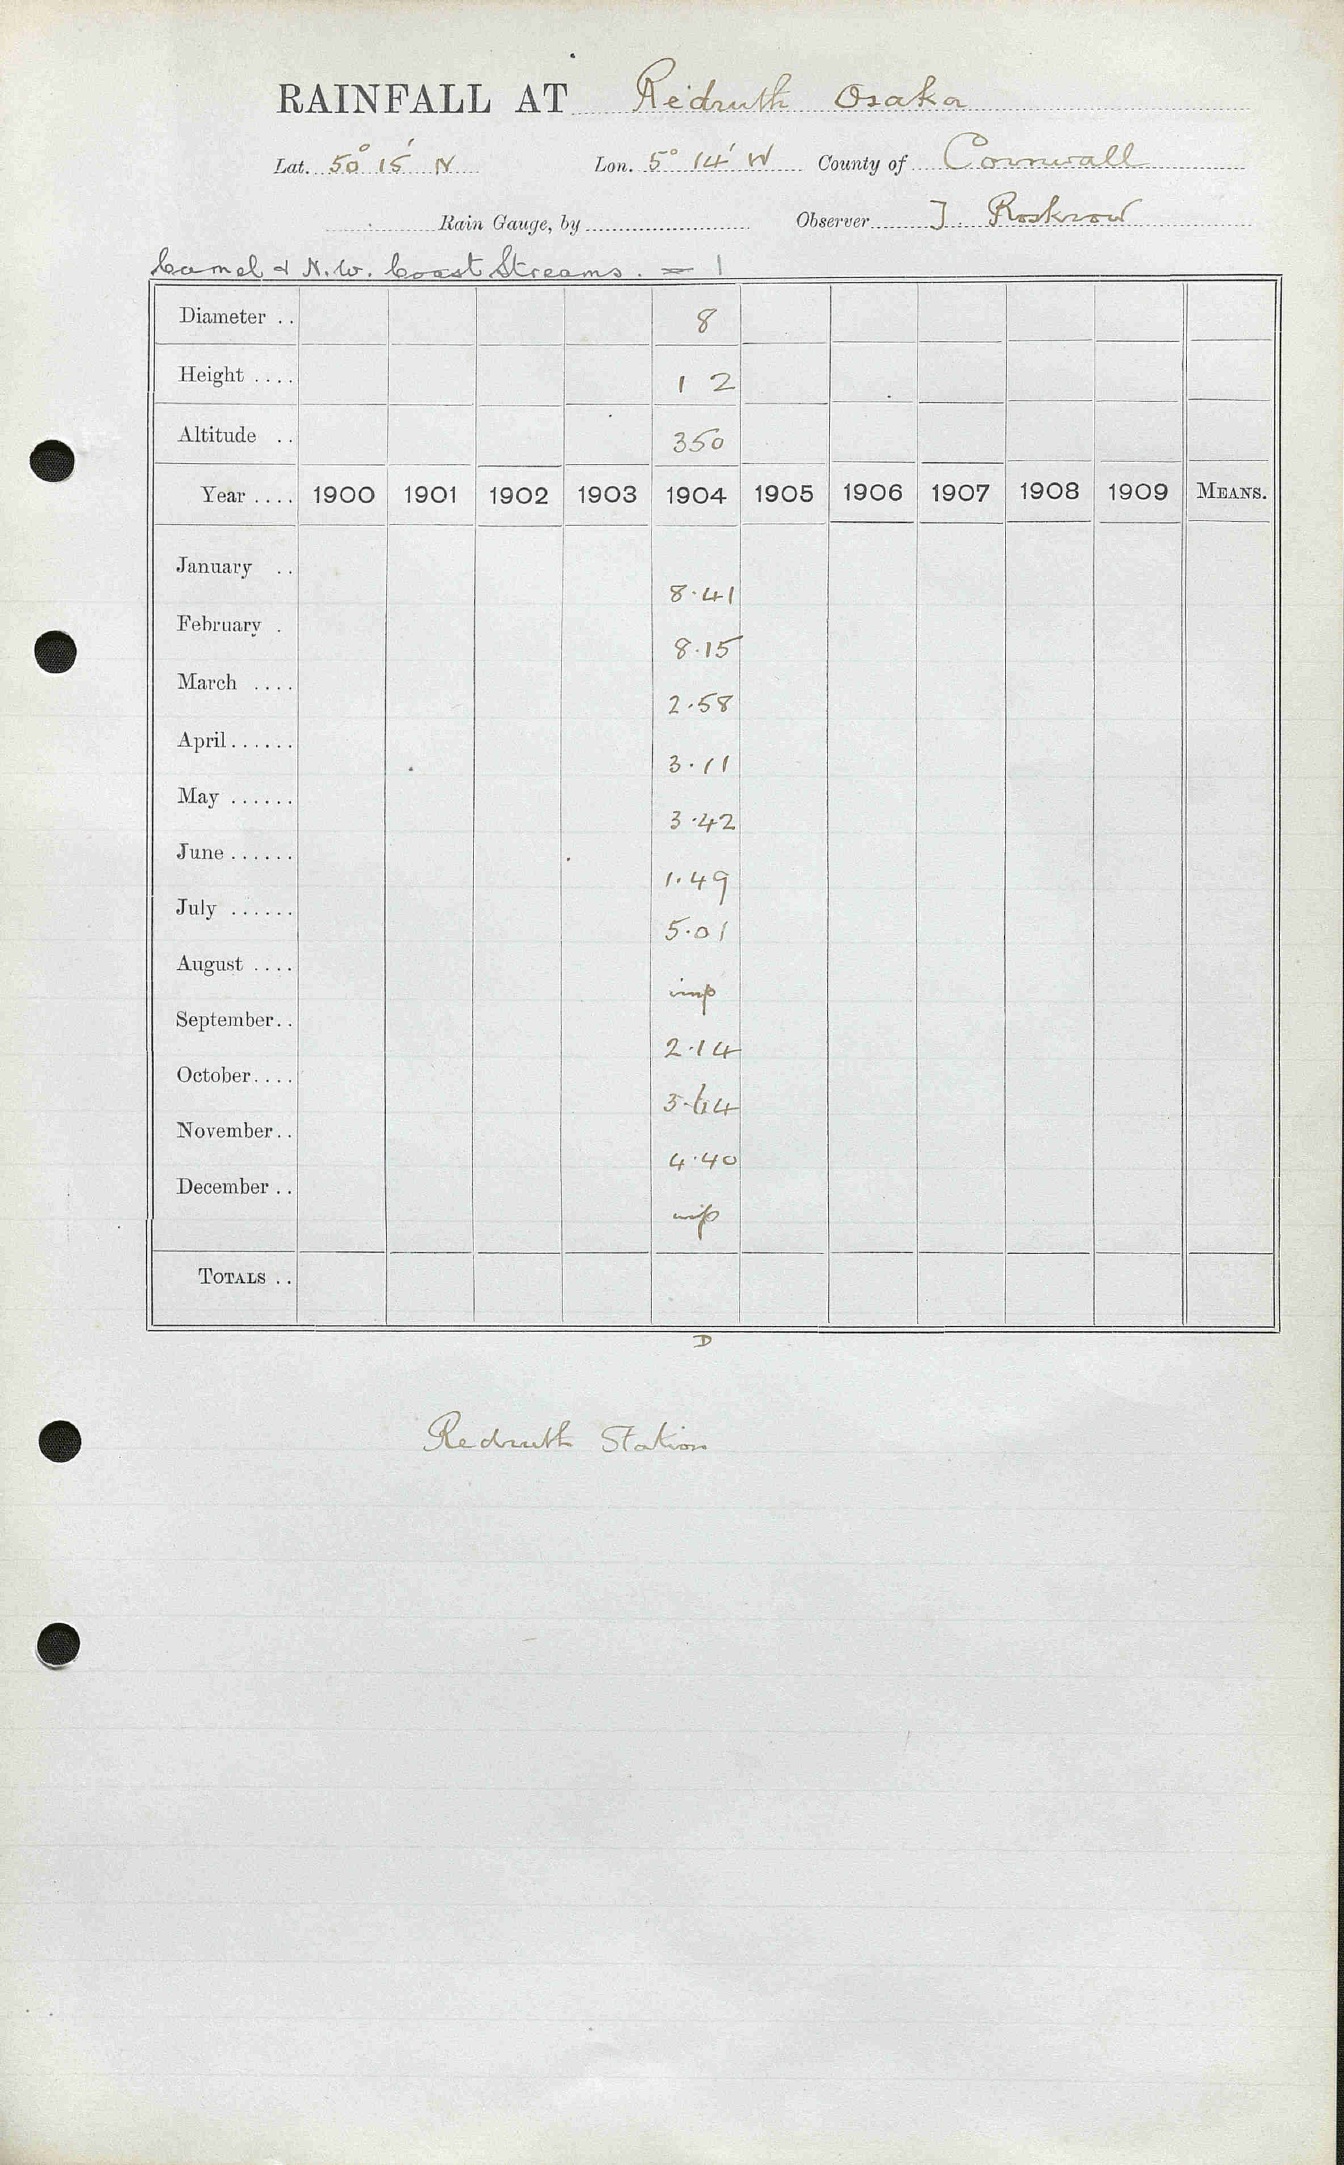 RAINFALL AT Redruth Osaka
Lat. 50° 15' N Lon. 5° 14' W County of Cornwall
Rain Gauge, by Observer J. Roskrow
Camel & N.W. Coast Streams. = 1
Diameter .. 8
Height .... 1 2
Altitude .. 350
Year .... 1900 1901 1902 1903 1904 1905 1906 1907 1908 1909 MEANS.
January .. 8.41
February . 8.15
March .... 2.58
April ...... 3.11
May ...... 3.42
June ...... 1.49
July ...... 5.01
August .... imp
September .. 2.14
October ....
November .. 4.40
December .. imp
TOTALS ..
D
Redruth Station